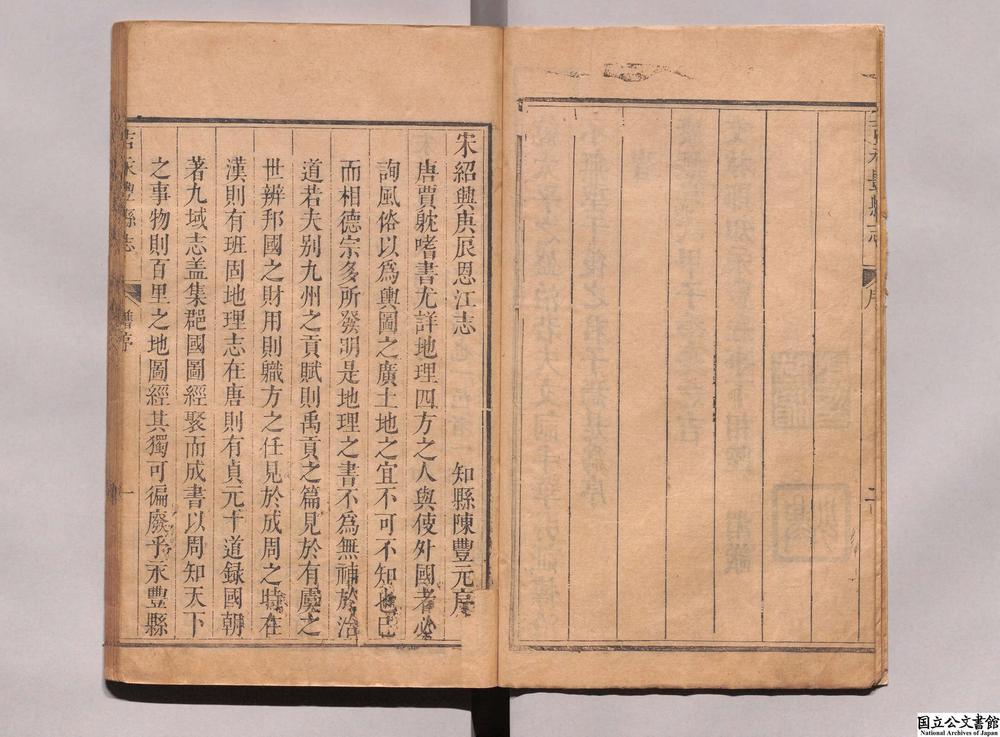 宋紹興庚辰恩江志　知縣陳豐元序
唐賈躭嗜書尤詳地理四方之人與使外國者必
詢風俗以爲輿圖之廣土地之宜不可不知也已
而相德宗多所發明是地理之書不爲無補於治
道若夫别九州之貢賦則禹貢之篇見於有虞之
世辨邦國之財用則職方之任見於成周之時在
漢則有班固地理志在唐則有貞元十道録國朝
著九域志盖集郡國圖經聚而成書以周知天下
之事物則百里之地圖經其獨可徧廢乎永豐縣
吉永豐縣志
舊序
一
永豐縣志
序
二
国立公文書館
National Archives of Japan